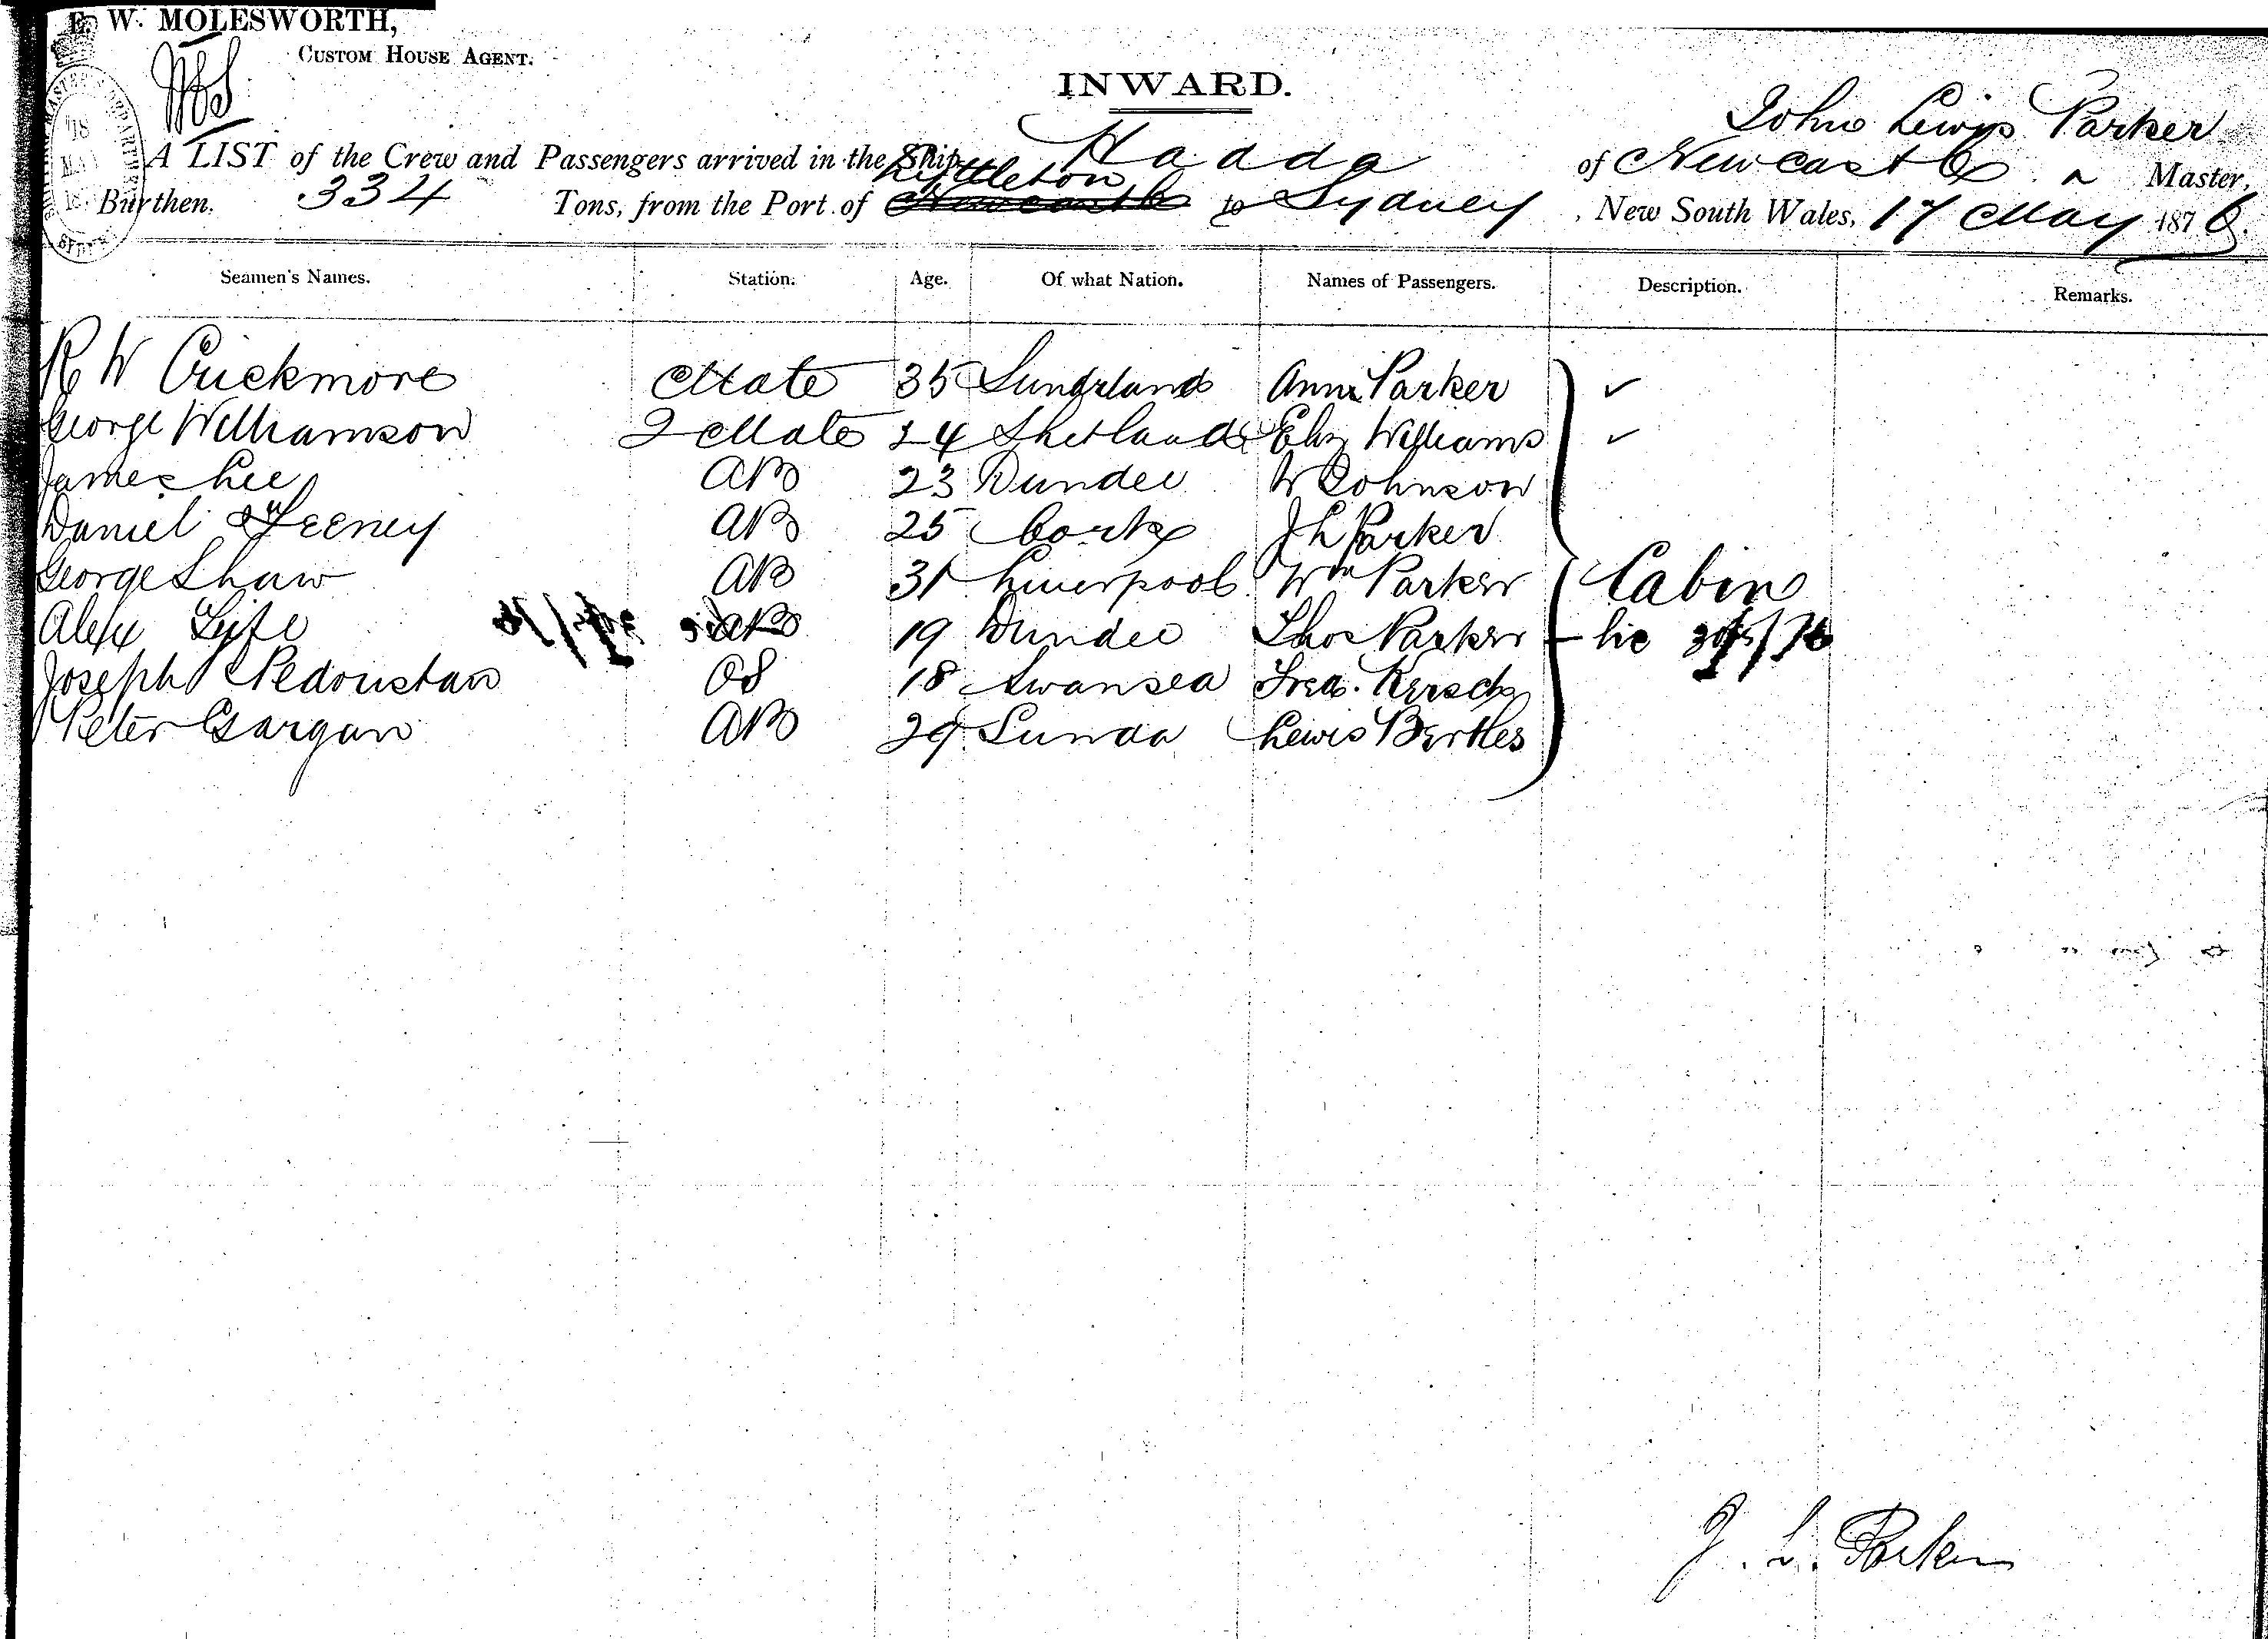 E. W. MOLESWORTH,
CUSTOM HOUSE AGENT.
INWARD.
John Lewis Parker
A LIST of the Crew and Passengers arrived in the Ship Hadda of Newcastle Master,
Lyttleton
Burthen, 334 Tons, from the Port of Newcastle to Sydney, New South Wales, 17 May 1876
Seamen's Names. Station. Age. Of what Nation. Names of Passengers. Description. Remarks.
R W Crickmore Mate 35 Sunderland Ann Parker ✓
George Williamson 2 Mate 24 Shetland Eliz Williams ✓
James Lee AB 23 Dundee W Johnson
Daniel Feeney AB 25 Cork J L Parker
George Shaw AB 31 Liverpool Wm Parker Cabin
Alex AB 19 Dundee Thos Parker
Joseph OS 18 Swansea Fred. Kersch
Peter Gargan AB 29 Lewis Bertles
J. L. Parker